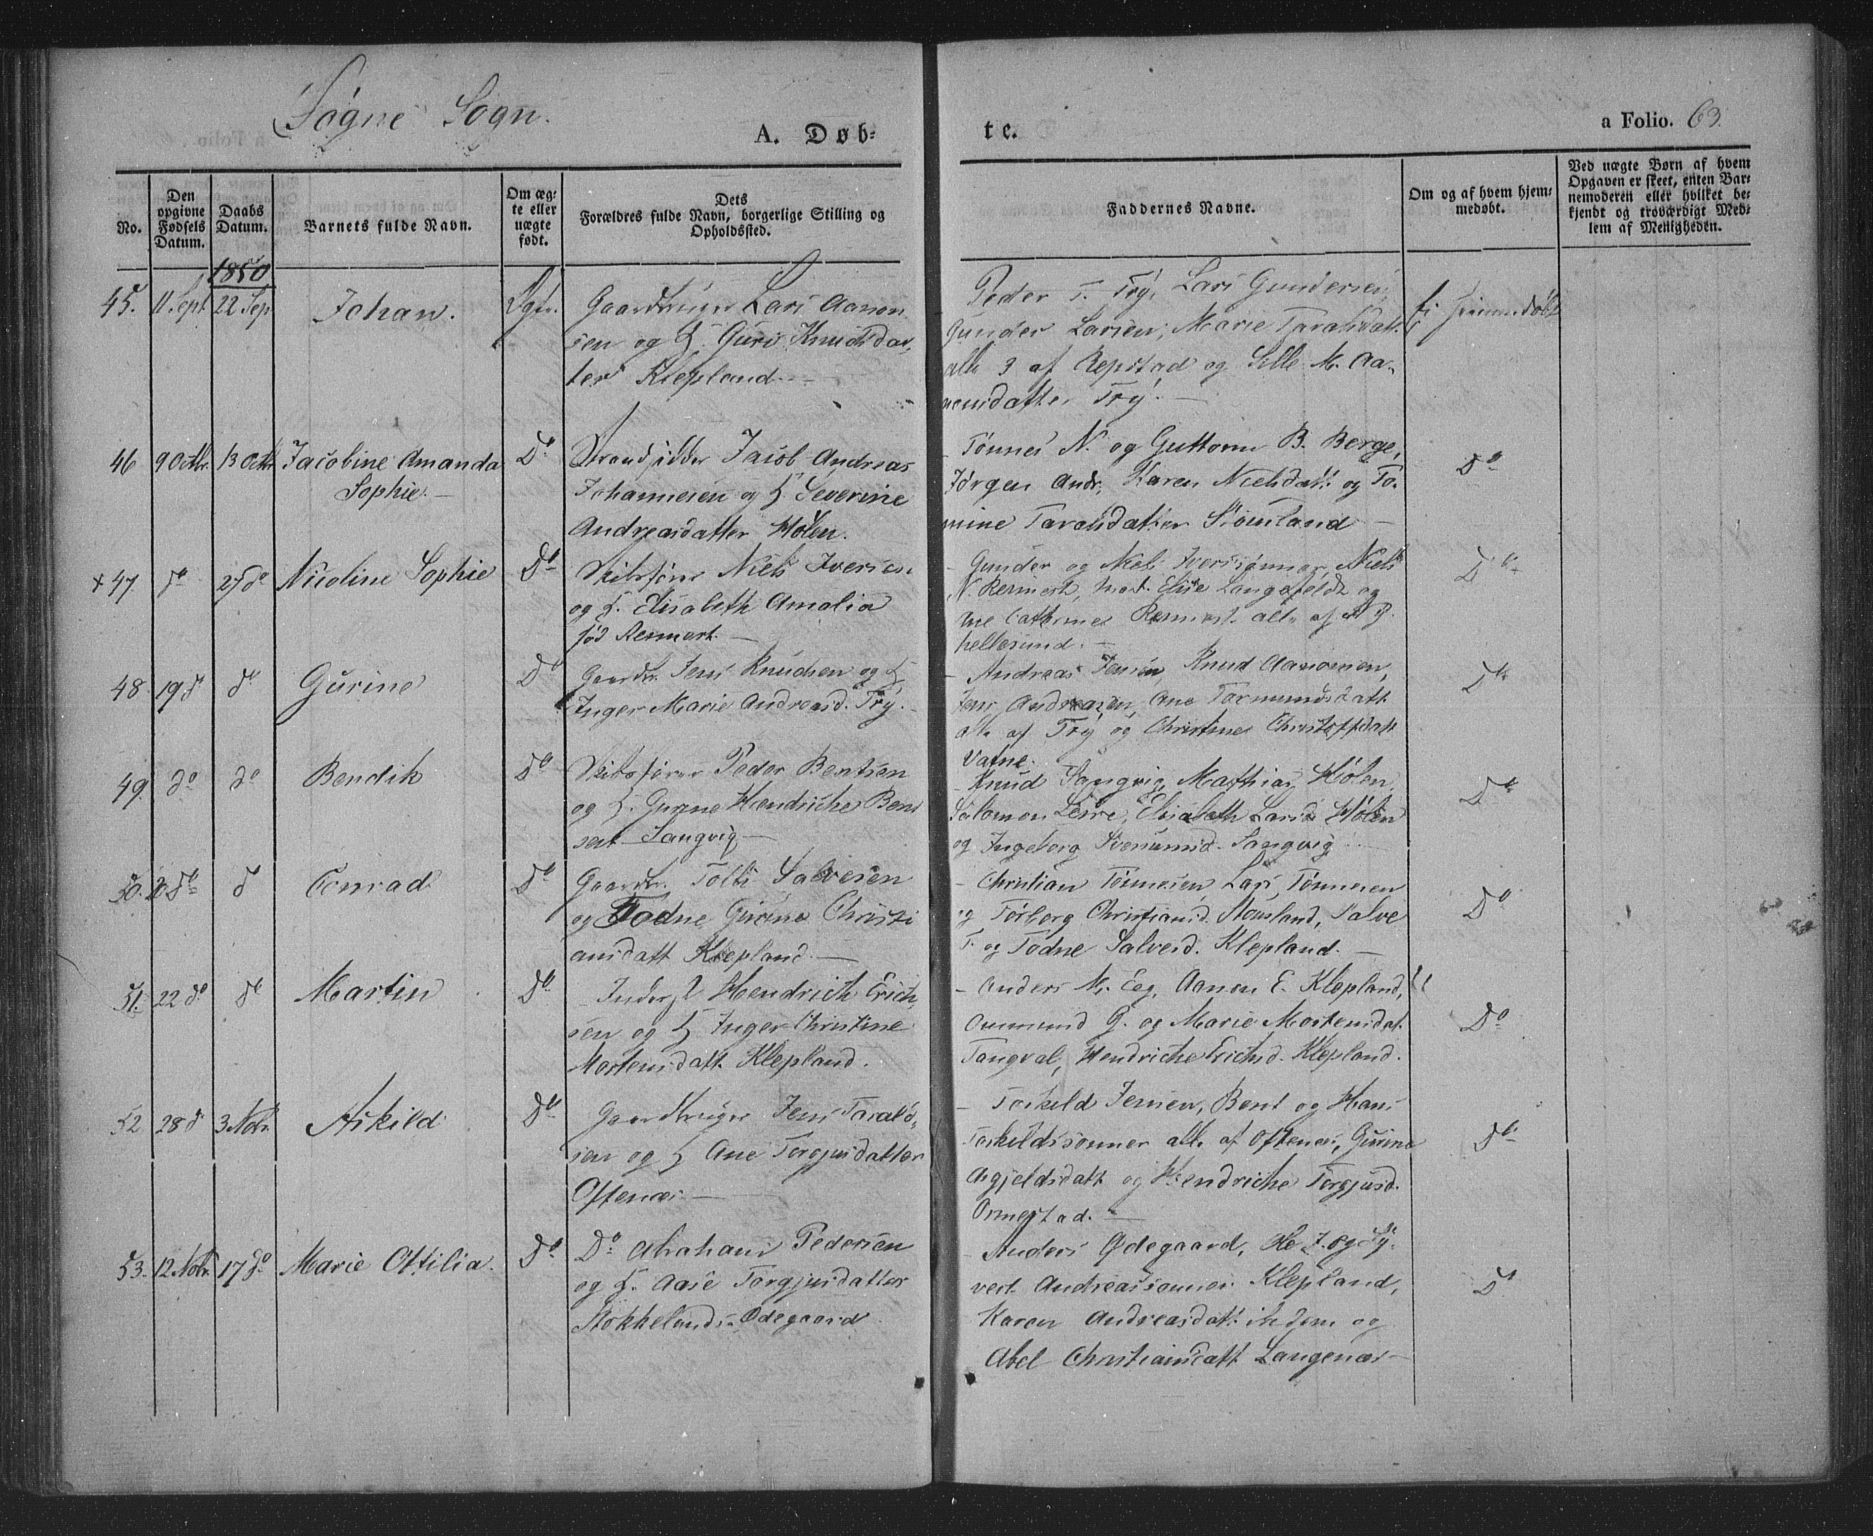 Søgne Sogn.
A. Døb-
te.
a Folio. 63.
No.
Den opgivne Fødsels Datum.
Daabs Datum.
Barnets fulde Navn.
Om ægte eller uægte født.
Dets
Forældres fulde Navn, borgerlige Stilling og
Opholdssted.
Faddernes Navne.
Om og af hvem hjem-
medøbt.
Ved uægte Børn af hvem
Opgaven er skeet, enten Bar-
nemoderen eller hvilket be-
kjendt og troværdigt Med-
lem af Menigheden.
1850
45. 11 Sept 22 Sep Johan. Ægte. Gaardbruger Lars Aanon
sen og H. Guri Knudsdat,
ter Klepland.
Peder T. Try, Lars Gundersen,
Gunder Larsen, Marie Taraldsdatt.
alle 3 af Repstad og Sille M. Aa-
nensdatter Try.
Ei hjemmedøbt
46 9 Octbr. 13 Octb. Jacobine Amanda
Sophie.
Do Strandsidder Jacob Andreas
Johannesen og H Severine
Andreasdatter Hølen.
Tønnes N. og Guttorm B. Berge,
Jørgen Andr, Karen Nielsdatt. og To-
mine Taraldsdatter Stousland
Do
+47. do 27 do Nicoline Sophie Do Skibsfører Niels Iversen
og H. Elisabeth Amalia
fød Reimert.
Gunder og Niels Iverssønner, Niels
N. Reimert, Elise Langefeldt og
Ane Cathrine Reimert alle af Ny
hellesund.
Do
48 19 d do Gurine Do Gaardbr. Jens Knudsen og H
Inger Marie Andreasd. Try.
Andreas Jensen, Knud Aanonsen,
Jens Andreasen, Ane Tormundsdatt
alle af Try og Christine Christoffdatt
Vatne.
Do
49. do do Bendik Do Skibsfører Peder Bentsen
og H. Gurine Hendriche Bent
sen Langvig
Knud Langvig, Mathias Hølen,
Salomon Leire, Elisabeth Larsd. Hølen
og Ingeborg Langvig
Do
50. 20. do d Conrad Do Gaardbr. Tolli Salvesen
og Todne Gurine Christi
ansdatt Klepland.
Christian Tønnesen Lars Tønnesen
og Torborg Christiansd. Stousland, Salve
T. og Todne Salvesd. Klepland.
Do
51. 22 do do Martin Do Inderst Hendrich Erich,
sen og H Inger Christine
Mortensdatt. Klepland.
Anders M. Eeg, Aanon E. Klepland,
Ommund G. og Marie Mortensdat.
Tangval, Hendriche Erichsd. Klepland.
Do
52 28 d 3 Novbr. Askild Do Gaardbruger Jens Tarald,
sen og H Ane Torgjusdatter
Oftenæs.
Torkild Jensen, Bent og Hans
Torkildssønner alle af Oftenæs, Gurine
Asgjeldsdatt og Hendriche Torgjusd.
Ormestad.
Do
53. 12 Novbr. 17 do Marie Ottilia. Do Do Abraham Pedersen
og H. Aase Torgjusdatter
Stokkelands Ødegaard
Anders Ødegaard, J. og Sy-
vert Andreassønner Klepland,
Karen Andreasdatt. ibidem og
Abel Christiansdatt Langenæs
Do